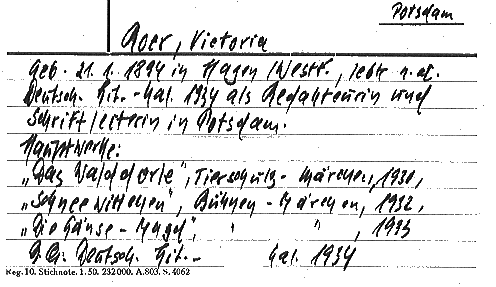 Potsdam
Roer, Victoria
Geb. 21. 1. 1894 in Hagen/Westf., lebte n. d.
Deutsch. Lit.-Kal. 1934 als Redakteurin und
Schriftleiterin in Potsdam.
Hauptwerke:
„Das Walddorle", Tierschutz-Märchen, 1930,
„Schneewittchen", Bühnen-Märchen, 1932,
„Die Gänse-Magd", " " , 1933
Deutsch. Lit.- Kal. 1934
Reg. 10. Stichnote. 1. 50. 232000. A.803. S. 4062